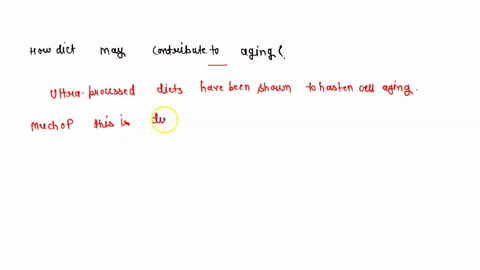 How diet may contribute to aging?
Ultra-processed diets have been shown to hasten cell aging.
Much of this is du